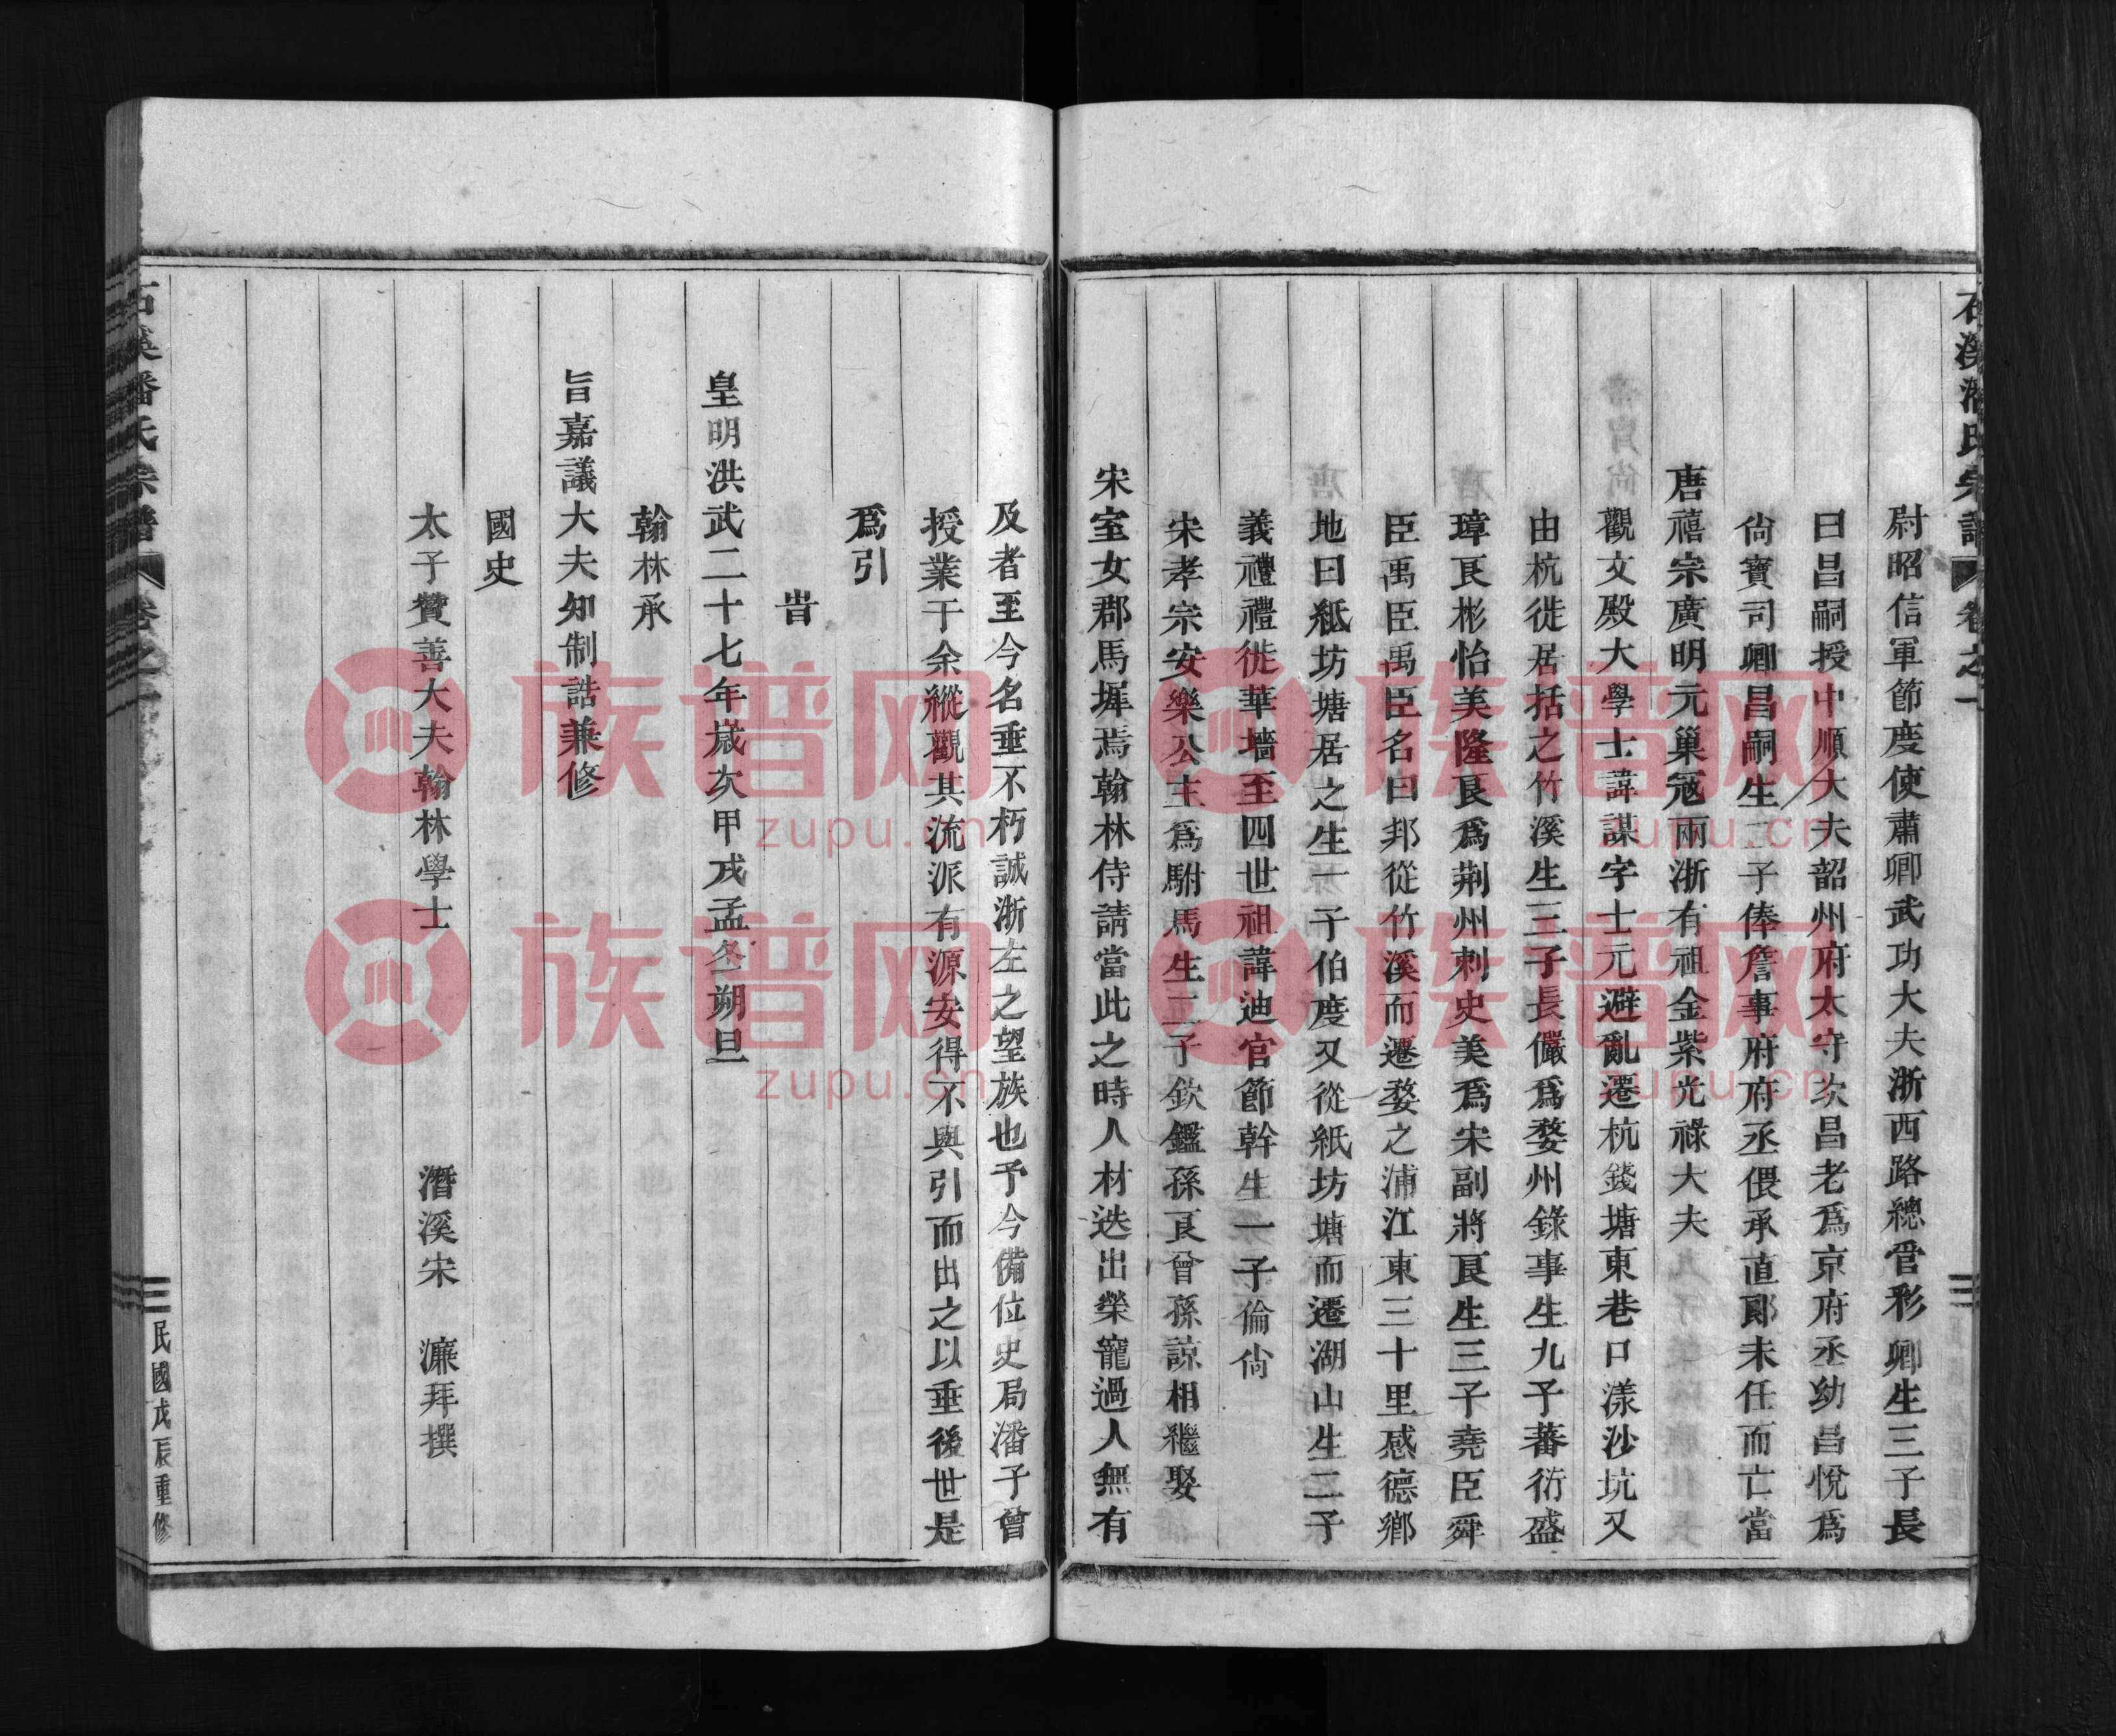 石溪潘氏宗譜 卷之一
尉昭信軍節度使肅卿武功大夫浙西路總管彩卿生三子長
曰昌嗣授中順大夫韶州府太守次昌老爲京府丞幼昌悅爲
尙寶司卿昌嗣生二子俸詹事府府丞偎承直郎未任而亡當
唐禧宗廣明元巢寇兩浙有祖金紫光祿大夫
觀文殿大學士諱謀字士元避亂遷杭錢塘東巷口漾沙坑又
由杭徙居括之竹溪生三子長儼爲婺州錄事生九子蕃衍盛
璋艮彬怡美隆艮爲荆州刺史美爲宋副將艮生三子堯臣舜
臣禹臣禹臣名曰邦從竹溪而遷婺之浦江東三十里感德鄕
地曰紙坊塘居之生一子伯度又從紙坊塘而遷湖山生二子
義禮禮徙華墻至四世祖諱迪官節幹生一子倫尙
宋孝宗安樂公主爲駙馬生二子欽鑑孫艮曾孫諒相繼娶
宋室女郡馬墀焉翰林侍請當此之時人材迭出榮寵過人無有
及者至今名垂不朽誠浙左之望族也予今備位史局潘子曾
授業于余縱觀其流派有源安得不與引而出之以垂後世是
爲引
旹
皇明洪武二十七年歲次甲戌孟冬朔旦
翰林承
旨嘉議大夫知制誥兼修
國史
太子贊善大夫翰林學士 潛溪宋 濂拜撰
石溪潘氏宗譜 卷之一 民國戊辰重修
族谱网
zupu.cn
族谱网
zupu.cn
族谱网
zupu.cn
族谱网
zupu.cn